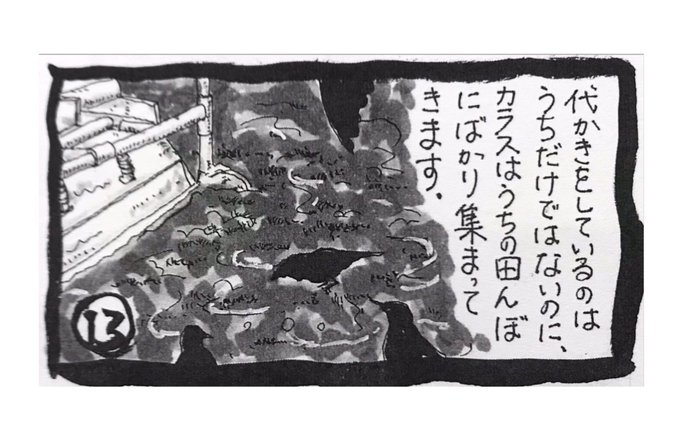 代かきをしているのは
うちだけではないのに、
カラスはうちの田んぼ
にばかり集まって
きます.
13